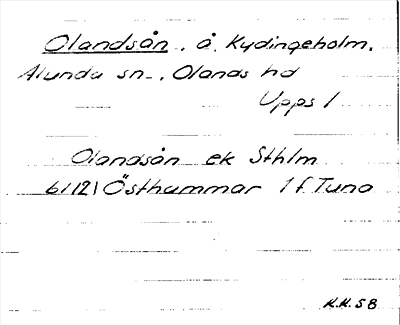 Olandsån, å, Kydingeholm,
Alunda sn., Olands hd
Upps l
Olandsån ek Sthlm
61121 Östhammar 1 f. Tuna
K.K. 58